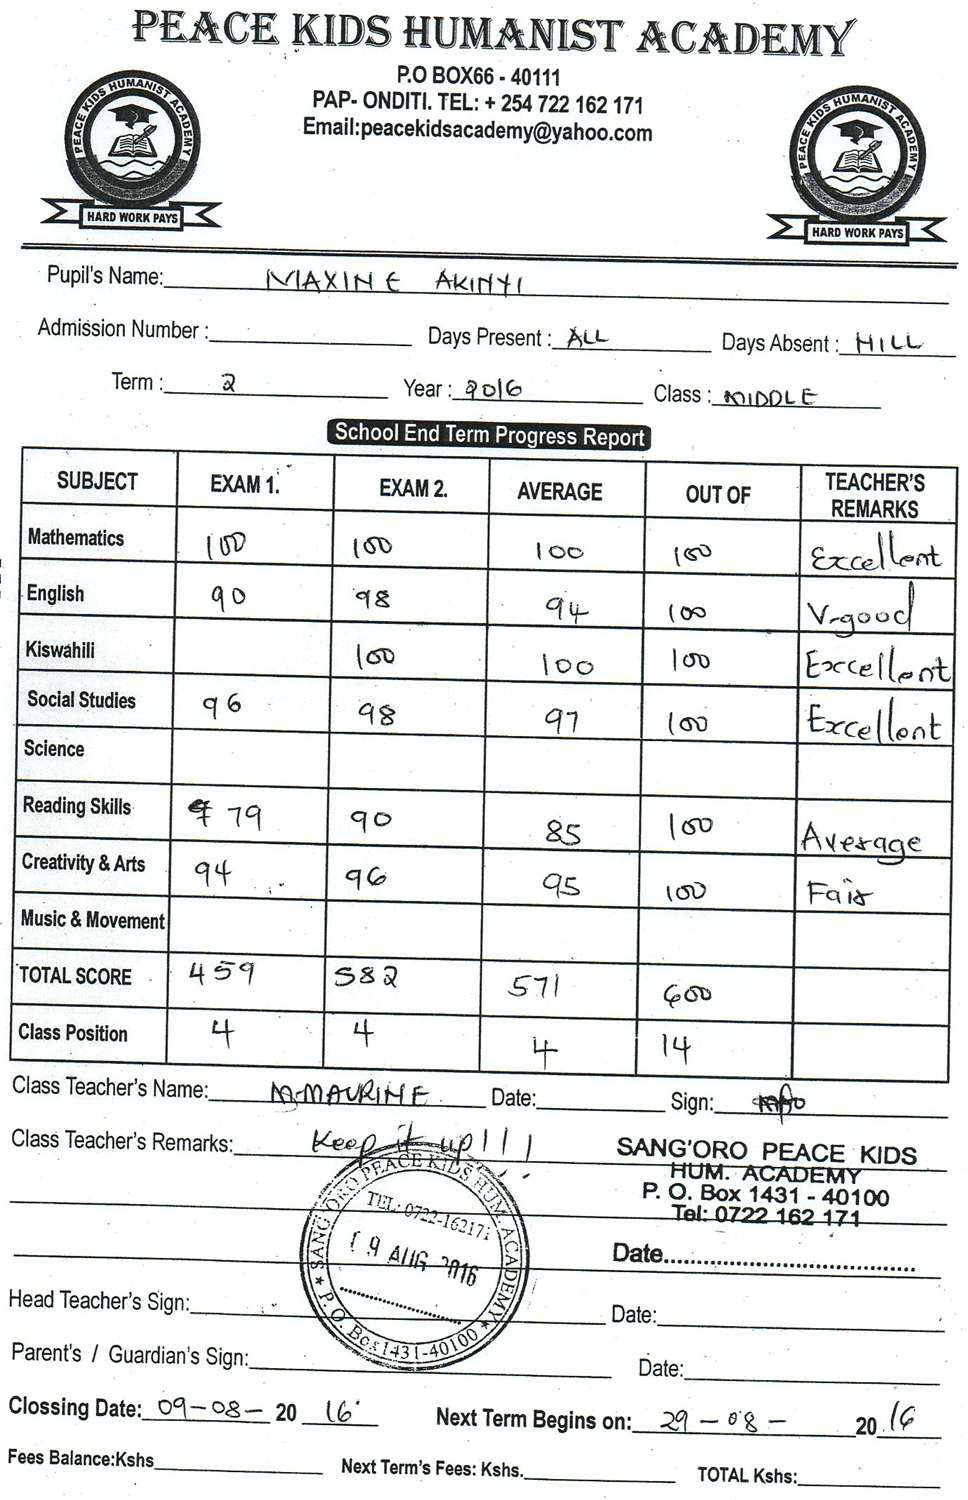 PEACE KIDS HUMANIST ACADEMY
P.O BOX66 - 40111
PAP- ONDITI. TEL: + 254 722 162 171
Email:peacekidsacademy@yahoo.com
PEACE KIDS HUMANIST ACADEMY
HARD WORK PAYS
PEACE KIDS HUMANIST ACADEMY
HARD WORK PAYS
Pupil's Name: MAXINE AKINYI
Admission Number : Days Present : ALL Days Absent : HILL
Term : 2 Year : 2016 Class : MIDDLE
School End Term Progress Report
SUBJECT EXAM 1. EXAM 2. AVERAGE OUT OF TEACHER'S REMARKS
Mathematics 100 100 100 100 Excellent
English 90 98 94 100 V.good
Kiswahili 100 100 100 Excellent
Social Studies 96 98 97 100 Excellent
Science
Reading Skills 79 90 85 100 Average
Creativity & Arts 94 96 95 100 Fair
Music & Movement
TOTAL SCORE 459 582 571 600
Class Position 4 4 4 14
Class Teacher's Name: M.MAURINE Date: Sign:
Class Teacher's Remarks: Keep it up!!!
SANG'ORO PEACE KIDS
HUM. ACADEMY
P. O. Box 1431 - 40100
Tel: 0722 162 171
Date....................................
SANG'ORO PEACE KIDS HUM. ACADEMY
TEL: 0722-162171
09 AUG 2016
* P.O. Box 1431-40100 *
Head Teacher's Sign: Date:
Parent's / Guardian's Sign: Date:
Clossing Date: 09-08- 20 16 Next Term Begins on: 29-08- 20 16
Fees Balance:Kshs Next Term's Fees: Kshs. TOTAL Kshs: